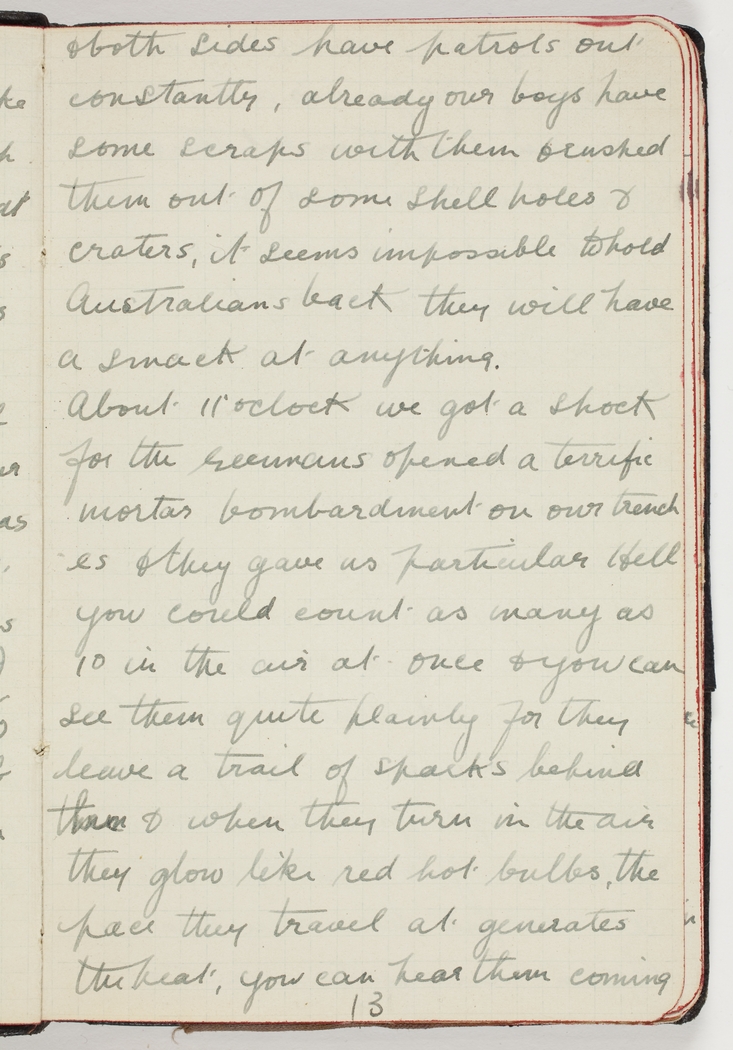 & both sides have patrols out
constantly, already our boys have
some scraps with them & rushed
them out of some shell holes &
craters, it seems impossible to hold
Australians back they will have
a smack at anything.
About 11 oclock we got a shock
for the Germans opened a terrific
mortar bombardment on our trench
es & they gave us particular Hell
you could count as many as
10 in the air at once & you can
see them quite plainly for they
leave a trail of sparks behind
them & when they turn in the air
they glow like red hot bulbs, the
pace they travel at generates
the heat, you can hear them coming
13